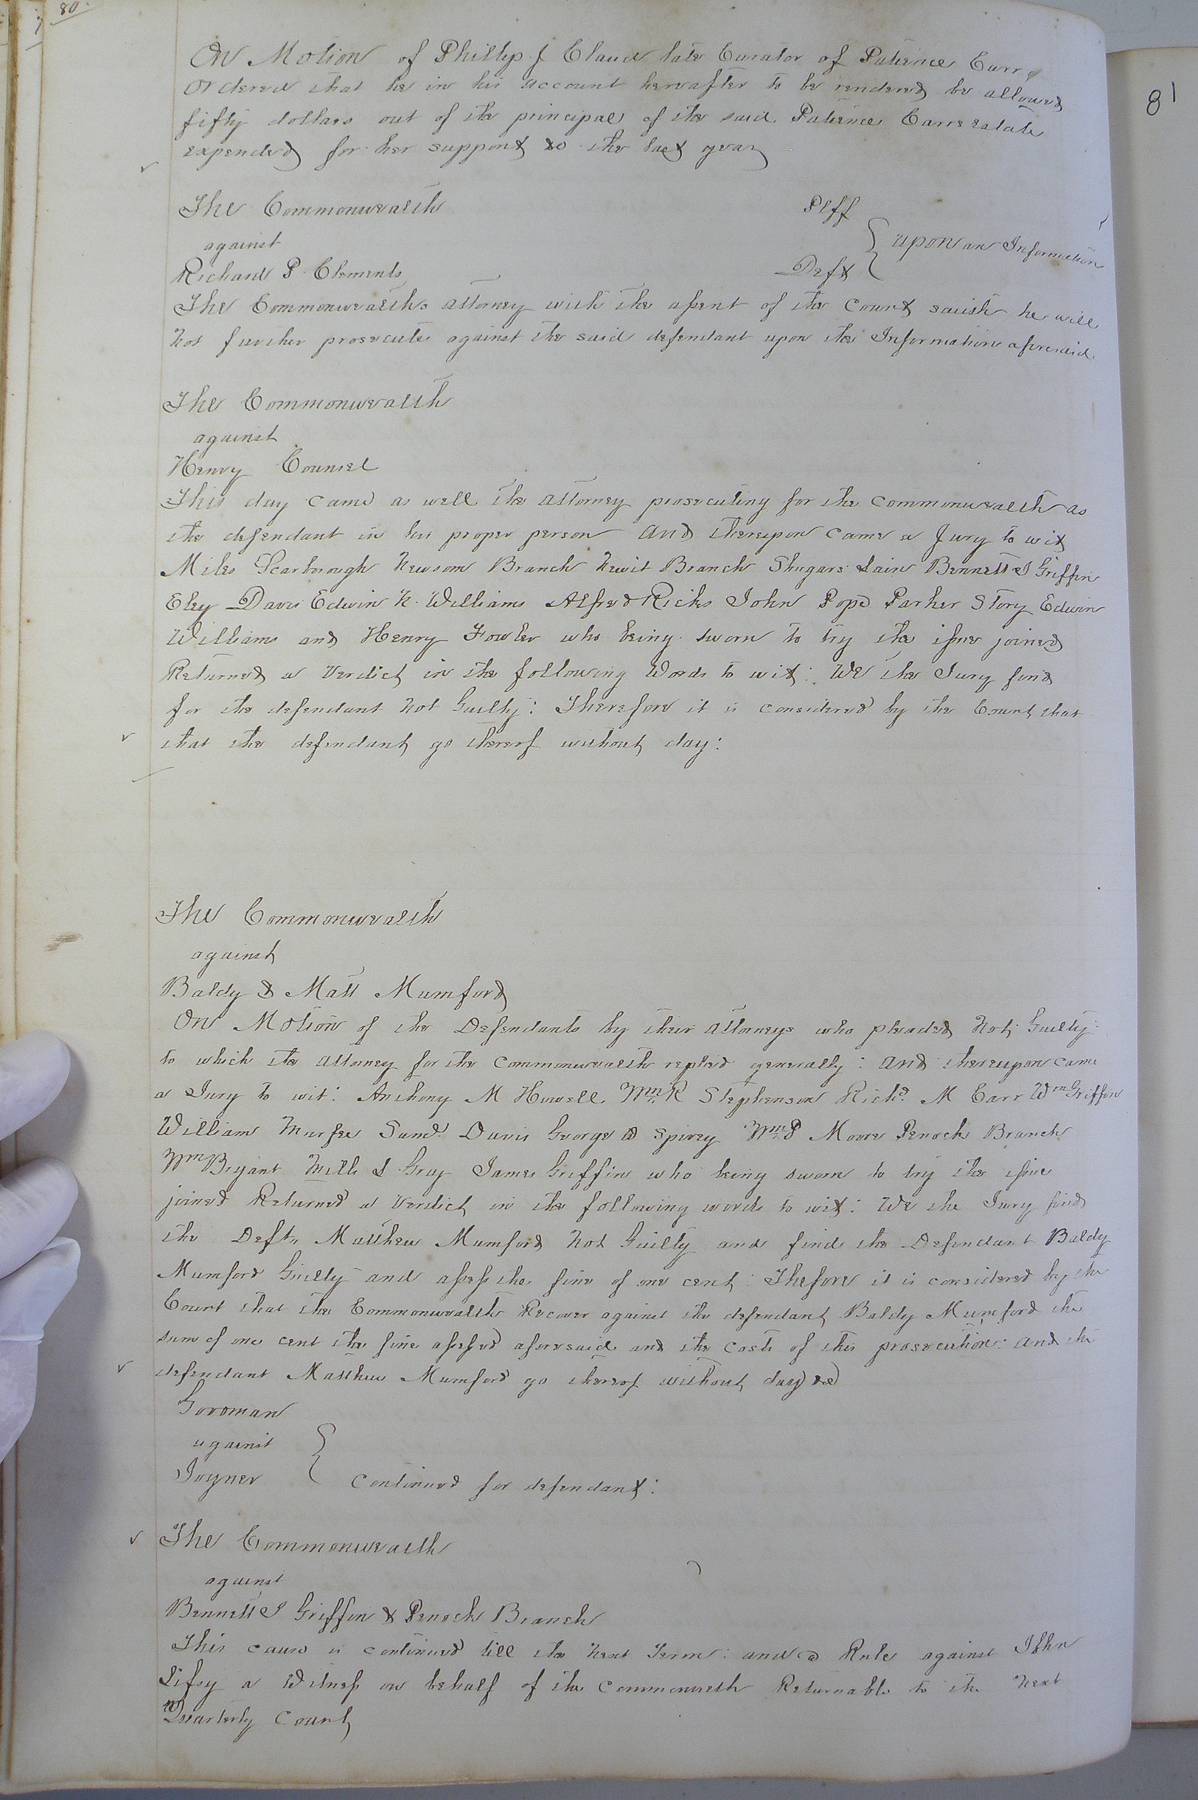 80
81
On Motion of Phillip J Claud late Curator of Patience Carr
Ordered that he in his account hereafter to be rendered be allowed
fifty dollars out of the principal of the said Patience Carrs estate
expended for her support &c the last year
The Commonwealth Plff
against upon an Information
Richard P Clements Deft
The Commonwealths attorney with the assent of the Court saith he will
not further prosecute against the said defendant upon the Information aforesaid
The Commonwealth
against
Henry Counsel
This day came as well the attorney prosecuting for the Commonwealth as
the defendant in his proper person and thereupon came a Jury to wit
Miles Scarborough Newsom Branch Newit Branch Shugars Lain Bennett J Griffin
Eley Davis Edwin N. Williams Alfred Ricks John Pope Parker Story Edwin
Williams and Henry Fowler who being sworn to try the issue joined
Returned a Verdict in the following Words to wit: We the Jury find
for the defendant not Guilty: Therefore it is considered by the Court that
that the defendant go thereof without day:
The Commonwealth
against
Baldy & Matt Mumford
On Motion of the Defendants by their attorneys who pleaded Not Guilty
to which the attorney for the Commonwealth replied generally: and thereupon came
a Jury to wit: Anthony M Howell Wm R Stephenson Richd M Carr Wm Griffin
William Murfee Saml Davis George D Spivey Wm P Moore Penock Branch
Wm Bryant Mills L Gray James Griffin who being sworn to try the issue
joined Returned a Verdict in the following words to wit: We the Jury find
the Deft. Matthew Mumford Not Guilty and find the Defendant Baldy
Mumford Guilty and assess the fine of one cent: Thefore it is considered by the
Court that the Commonwealth Recover against the defendant Baldy Mumford the
sum of one cent the fine assessed aforesaid and the costs of this prosecution: and the
defendant Matthew Mumford go thereof without day &c
Goodman
against
Joyner Continued for defendant:
The Commonwealth
against
Bennett J Griffin & Penock Branch
This cause is continued till the Next Term: and a Rule against John
Lifsy a Witness on behalf of the Commonwealth Returnable to the next
Quarterly Court